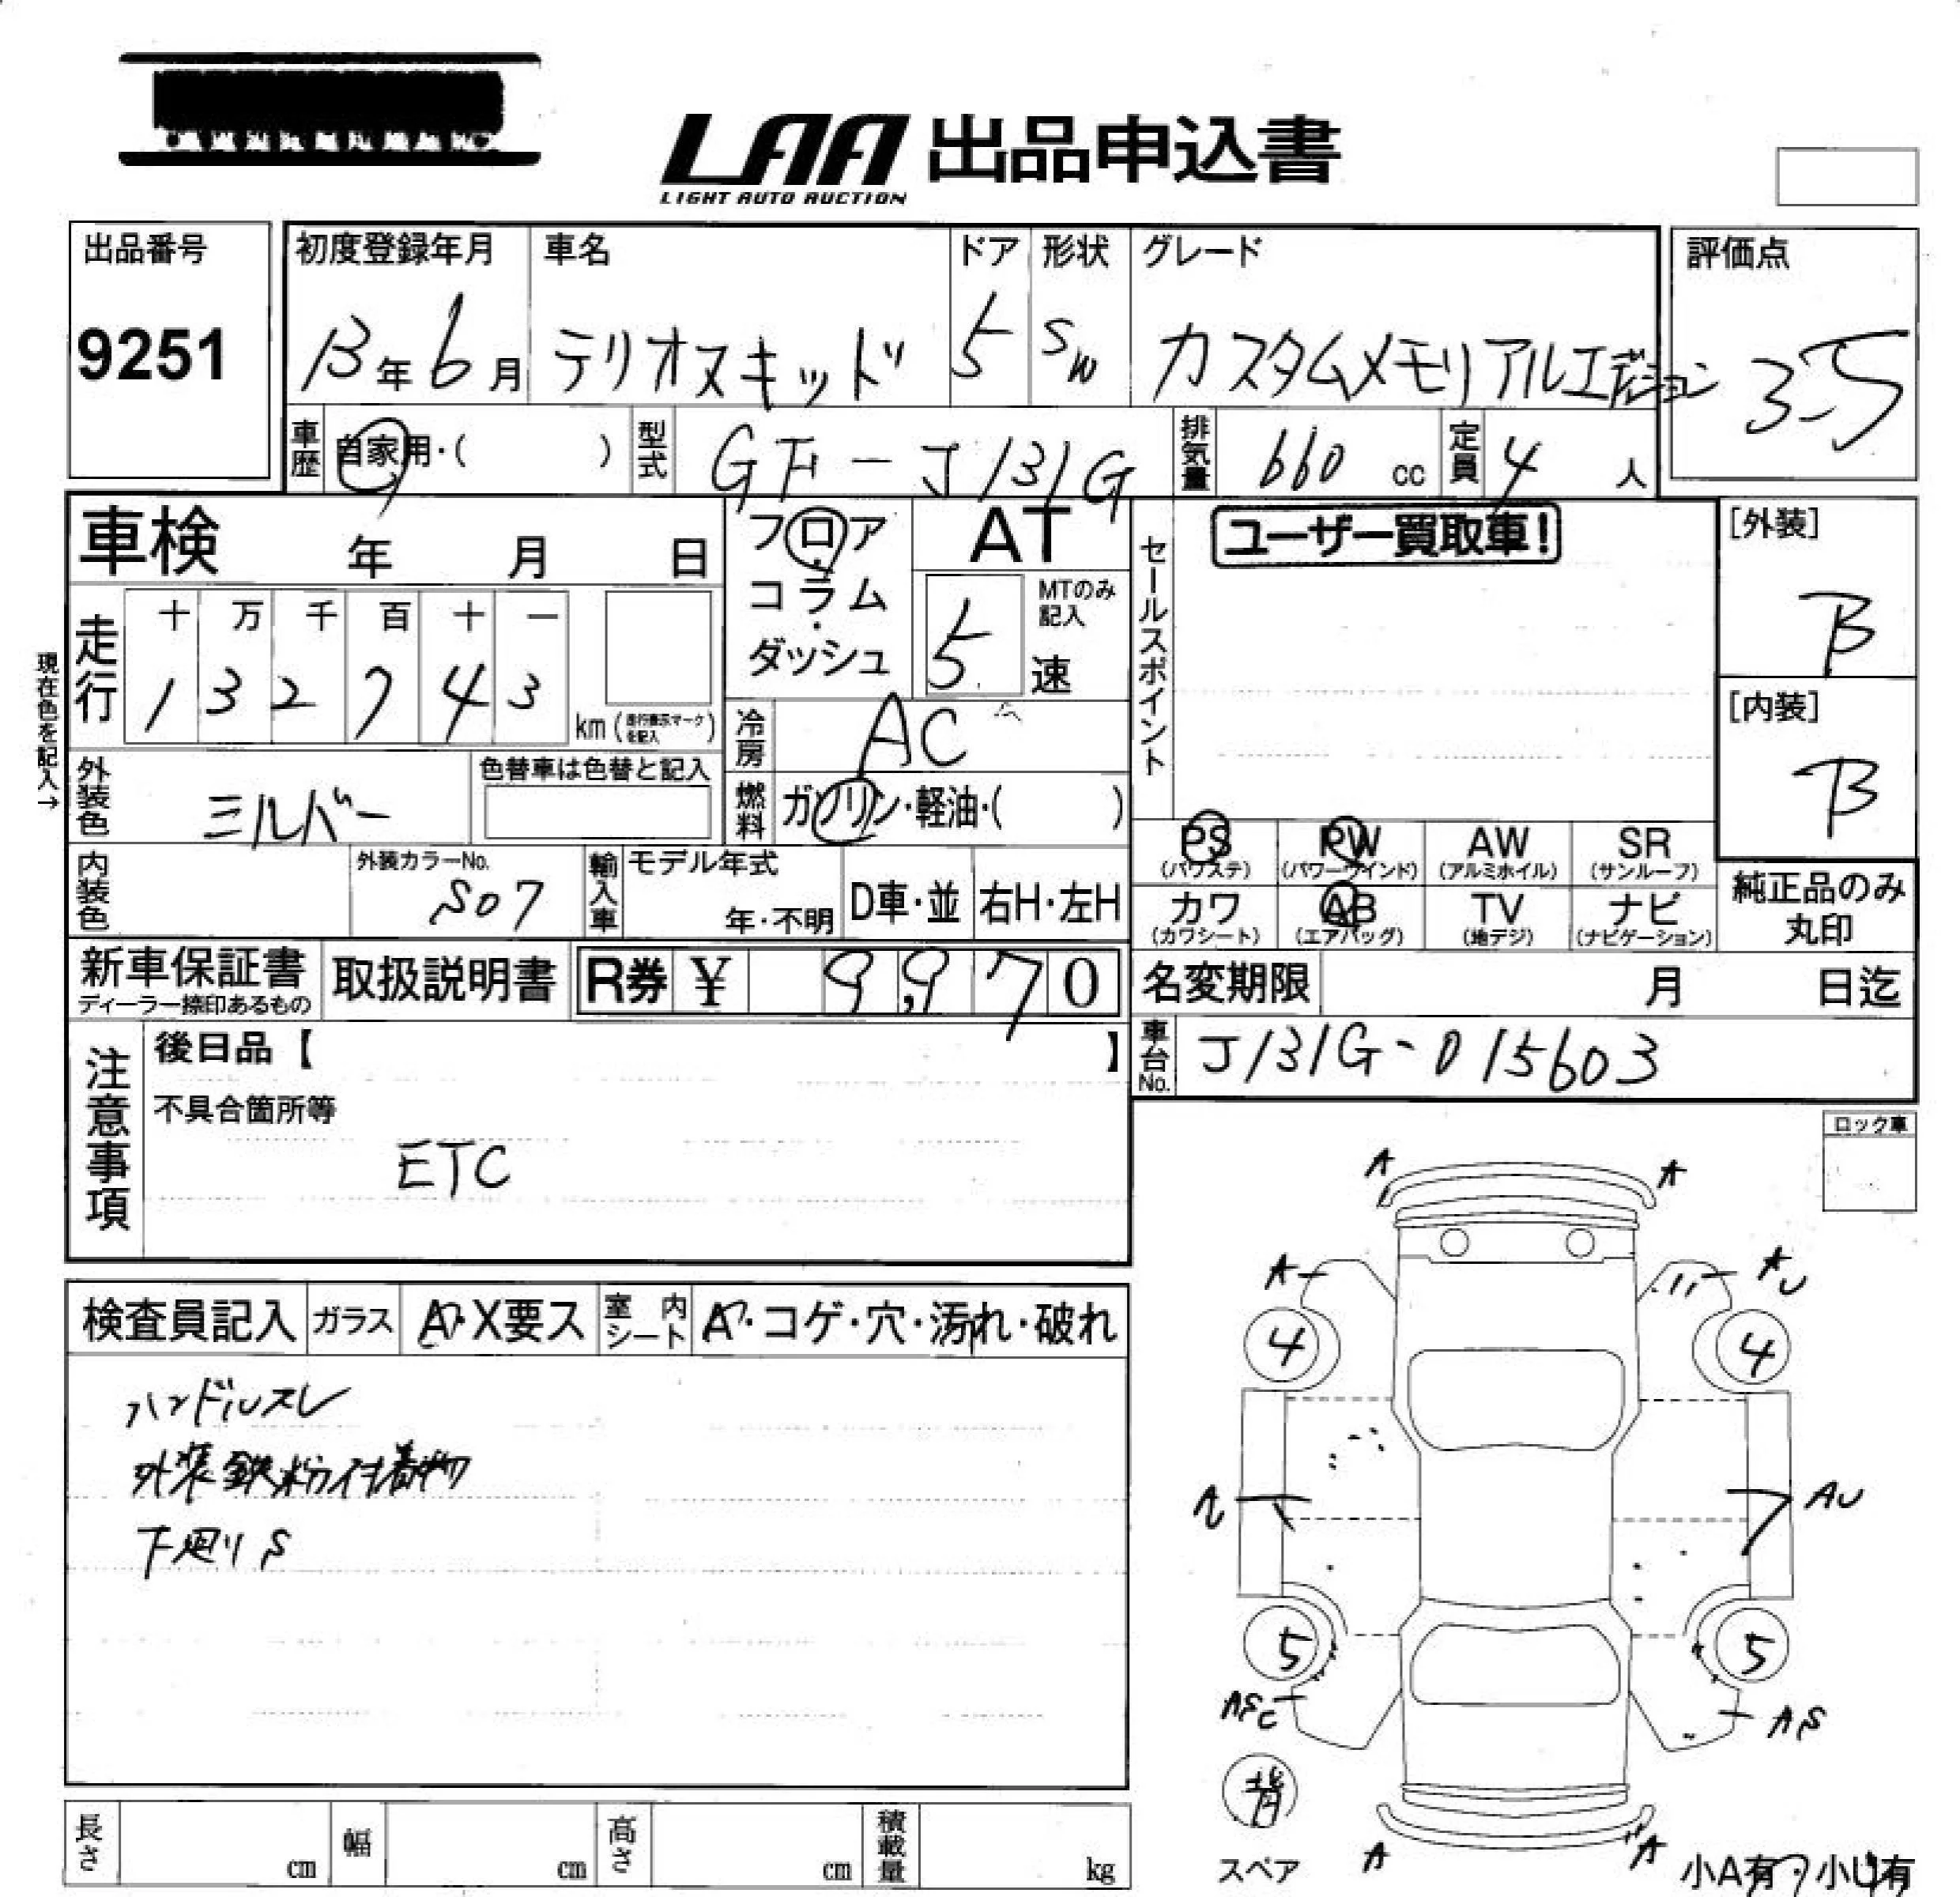 LAA 出品申込書
LIGHT AUTO AUCTION
出品番号 初度登録年月 車名 ドア 形状 グレード 評価点
9251 13年6月 テリオスキッド 5 SW カスタムメモリアルエディション 3.5
車歴 自家用・( ) 型式 GF-J131G 排気量 660 cc 定員 4 人
車検 年 月 日 フロア・コラム・ダッシュ AT
5 速 MTのみ記入
セールスポイント ユーザー買取車!
[外装] B
現在色を記入→
走行 十 万 千 百 十 一
1 3 2 7 4 3 km (走行表示マークを記入)
冷房 AC
[内装] B
外装色 シルバー 色替車は色替と記入
燃料 ガソリン・軽油・( )
PS (パワステ) PW (パワーウインド) AW (アルミホイル) SR (サンルーフ)
内装色 外装カラーNo. S07 輸入車 モデル年式 年・不明 D車・並 右H・左H
カワ (カワシート) AB (エアバッグ) TV (地デジ) ナビ (ナビゲーション)
純正品のみ丸印
新車保証書 ディーラー捺印あるもの 取扱説明書 R券 ¥ 9,970
名変期限 月 日迄
注意事項 後日品【 】
車台No. J131G-015603
不具合箇所等
ETC
ロック車
A A
A A U
4 4
検査員記入 ガラス A・X要ス 室内シート A・コゲ・穴・汚れ・破れ
ハンドルスレ
外装鉄粉付着物
下廻りS
AU
5 5
ASC AS
背
スペア
A A
小A有・小U有
長さ cm 幅 cm 高さ cm 積載量 kg